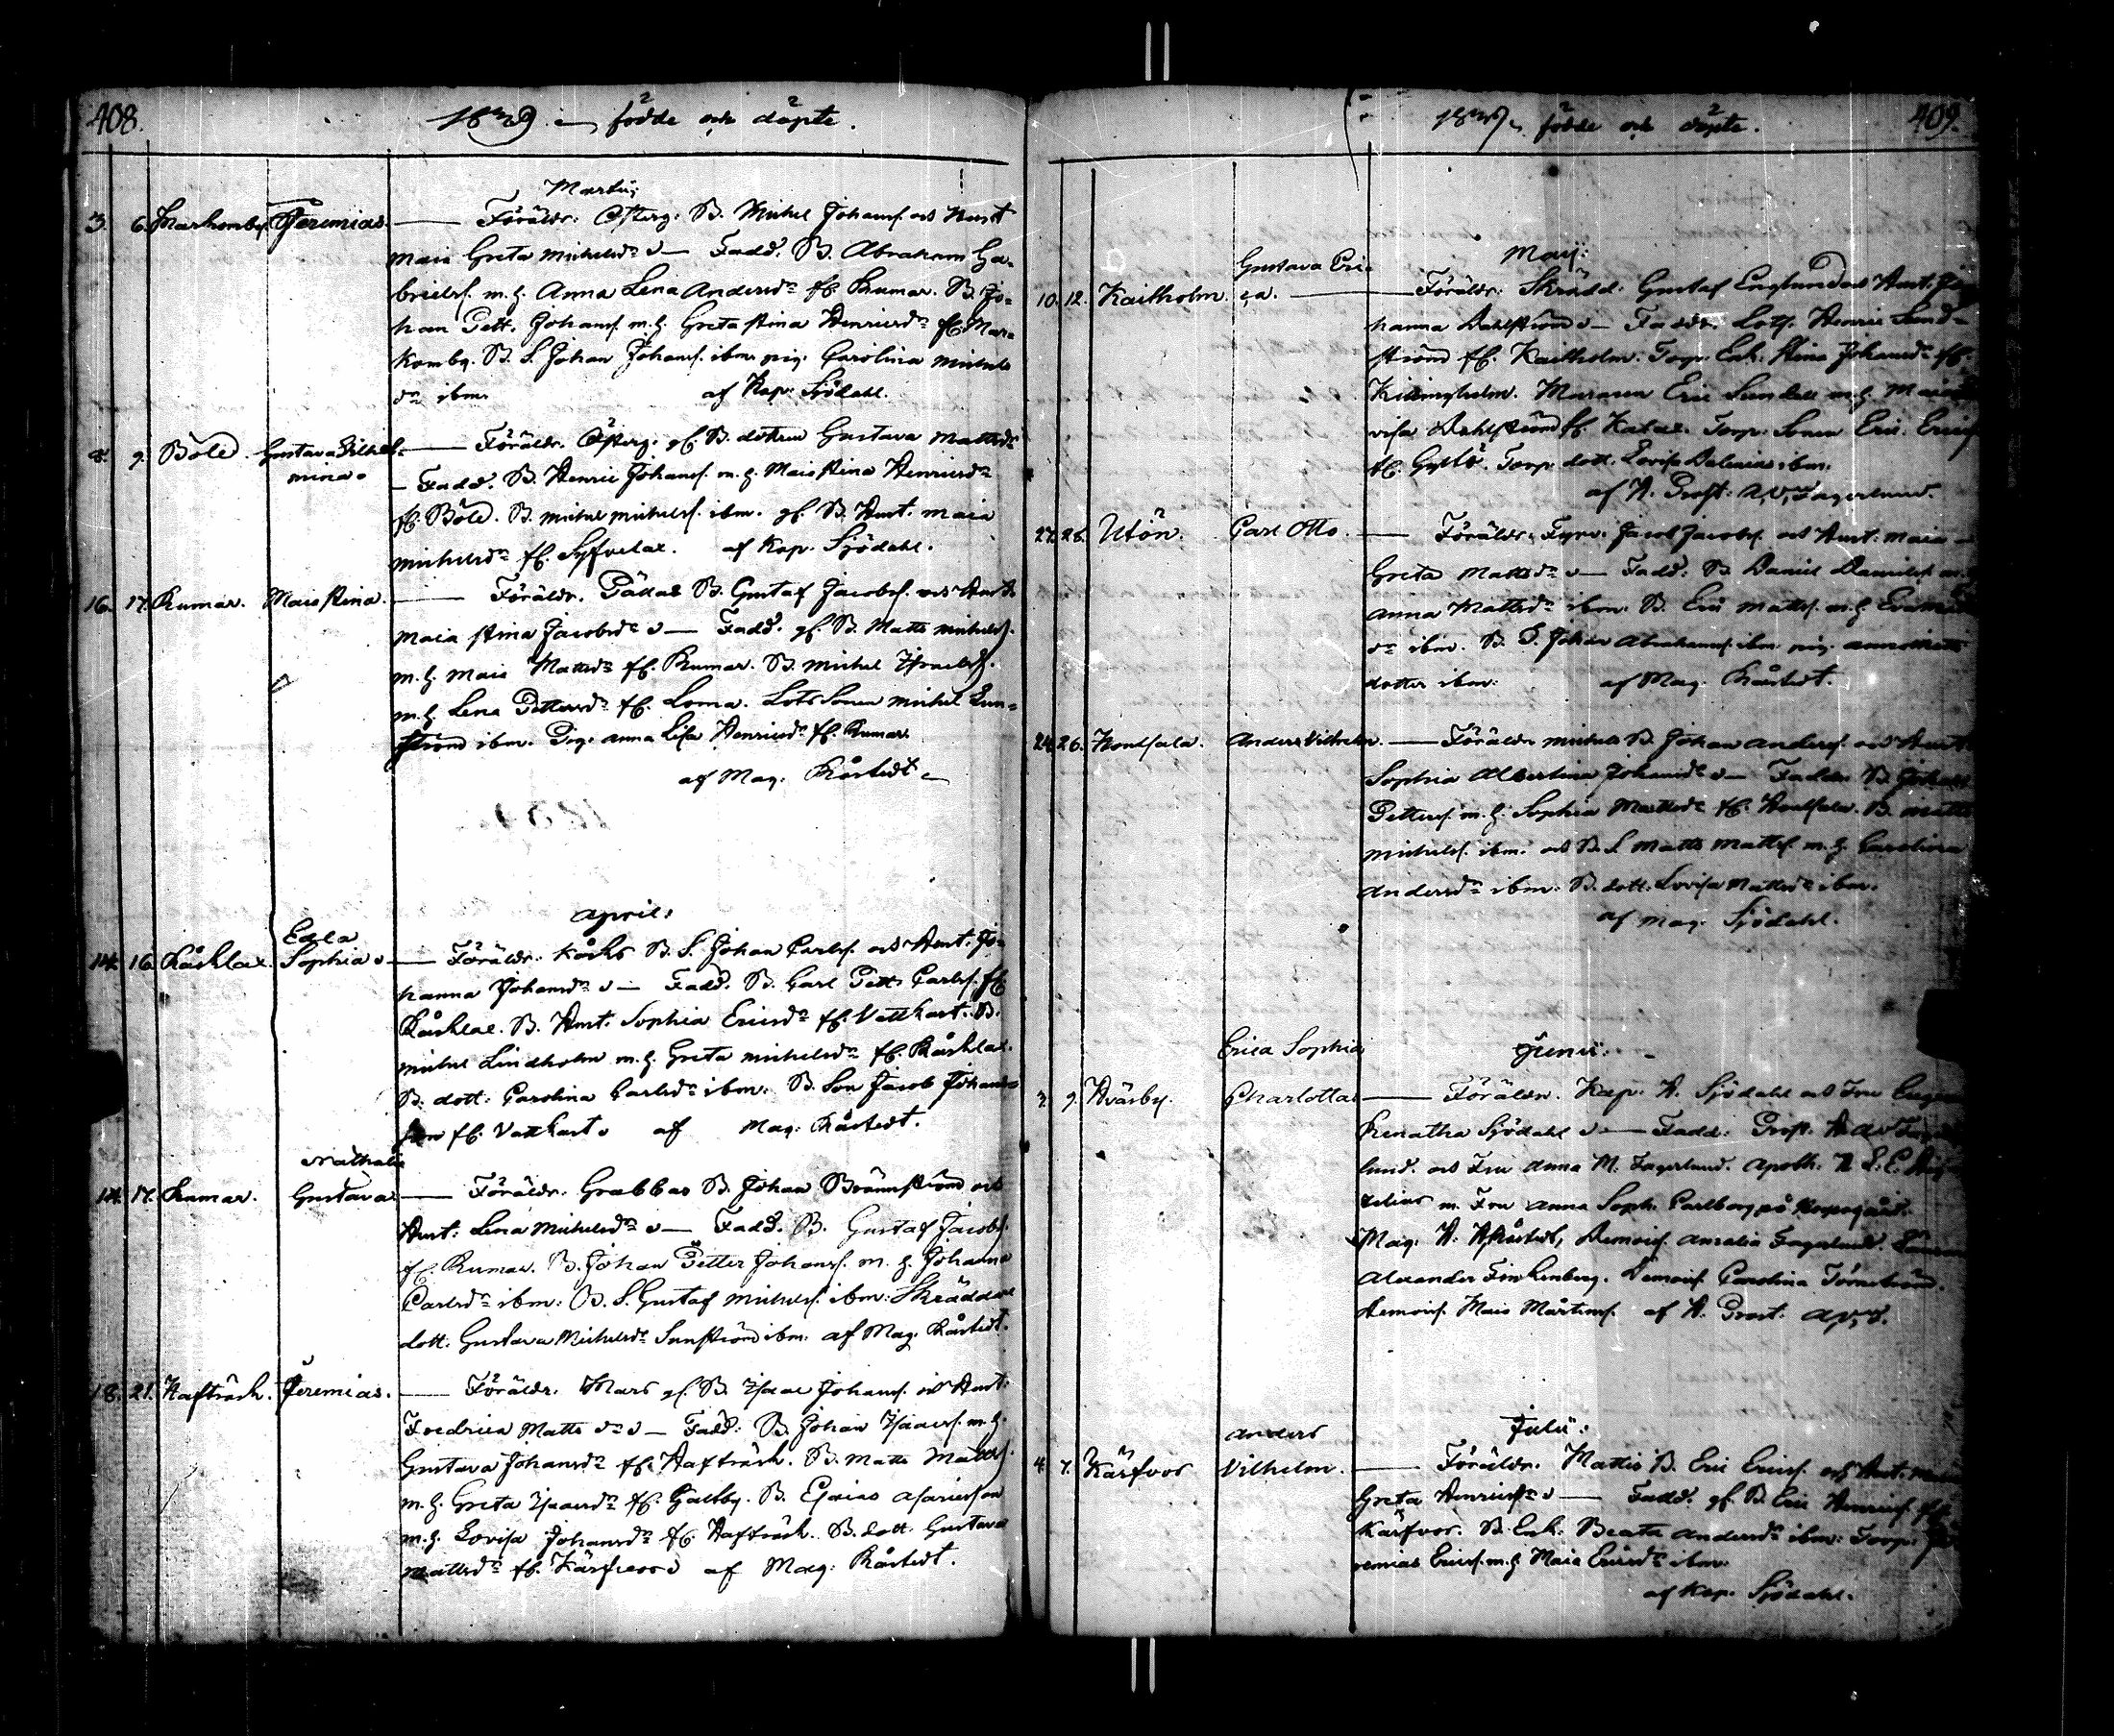 408.
18 39 födde och döpte.
Martii;
3. 6. Markomby Jeremias. Föräldr: Österg: B. Michel Johans. och Hust
Maia Greta Michelsdr Fadd. B. Abraham Ga-
briels. m. h. Anna Lena Andersdr fr. Rumar. B. Jo-
han Pett. Johans. m. h. Greta Stina Henricsdr fr. Mar-
komby. B. S. Johan Johans. ibm. pig. Carolina Michels
dr ibm. af Kap: Sjödahl.
8. 9. Böle. Gustava Vilhel-
mina. Föräldr. Österg: B. dottren Gustava Mattsdr
Fadd. B. Henric Johans. m. h. Maia Stina Henricsdr
fr. Böle. B. Michel Michels. ibm. gf. B. Hust. Maia
Michelsdr fr. af Kap. Sjödahl.
16. 17. Rumar. Maia Stina. Föräldr. B. Gustaf Jacobs. och Hust.
Maia Stina Jacobsdr Fadd. gf. B. Matts Michels.
m. h. Maia Mattsdr fr. Rumar. B. Michel Israels.
m. h. Lena Pettersdr fr. Loma. Lots Sonen Michel Sun-
ström ibm. Pig. Anna Lisa Henricsdr fr. Rumar.
af Mag. Råstedt
April:
Edla
14. 16. Råsklax. Sophia Föräldr: Kåcks B. S. Johan Carls. och Hust. Jo-
hanna Johansdr Fadd. B. Carl Pett. Carls. fr
Råsklax. B. Hust. Sophia Ericsdr fr. Vattkast. B.
Michel Lindholm m. h. Greta Michelsdr fr. Råsklax.
B. dott: Carolina Carlsdr ibm. B. Son Jacob Johans
son fr. Vattkast af Mag: Råstedt.
Nathalia
14. 17. Rumar. Gustava Föräldr. Grabbas B. Johan Brännström och
Hust: Lena Michelsdr Fadd. B. Gustaf Jacobs.
fr. Rumar. B. Johan Petter Johans. m. h. Johanna
Carlsdr ibm: B. S. Gustaf Michels. ibm: Skräddar
dott. Gustava Michelsdr Sunström ibm. af Mag. Råstedt.
18. 21. Hafträsk. Jeremias. Föräldr. Mars gf. B. Isaac Johans. och Hust:
Fredrica Mattsdr Fadd: B. Johan Isaacs. m. h.
Gustava Johansdr fr. Hafträsk. B. Matts Matts.
m. h. Greta Isaacsdr fr. Galtby. B. Esaias
m. h. Lovisa Johansdr fr Hafträsk. B. dott. Gustava
Mattsdr fr. Kärfvor af Mag: Råstedt.
409.
18 39 födde och döpte.
Maij:
Gustava Eri-
10. 12. Kaitholm. ca. Föräldr: Skrädd: Gustaf Englund och Hust. Jo
hanna Dahlström Faddr. Lots. Henric Sund-
ström fr. Kaitholm. Torp. Enk. Stina Johansdr fr.
Eric Sundell m. h. Maia
visa Dahlström fr. Torp. Sonen Eric Erics
fr. Gyltö. Torp. dott. Lovisa ibm.
af H. Prost: Fagerlund.
27. 28. Utön. Carl Otto. Föräldr: Fyrv. Jacob Jacobs. och Hust: Maia
Greta Mattsdr Fadd: B. Daniel Daniels. m.
Anna Mattsdr ibm. B. Eric Matts. m. h.
dr ibm. B. S. Johan Abrahams. ibm. pig. Anna Matts
dotter ibm: af Mag. Råstedt.
24. 26. Anders Vilhelm. Föräldr. Michels B. Johan Anders. och Hust
Sophia Albertina Johansdr Faddr. B. Johan
Petters. m. h. Sophia Mattsdr fr. B. Matts
Michels. ibm. och B. S. Matts Matts. m. h. Carolina
Andersdr ibm. B. dott. Lovisa Mattsdr ibm.
af Mag. Sjödahl.
Erica Sophia Junii:
9. Charlotta Föräldr. Kap. H. Sjödahl och Fru
Renatha Sjödahl Fadd: Prost. H.
lund. och Fru Anna M. Fagerlund. Apoth.
m. Fru Anna Soph. Carlborg på
Mag. H. Råstedt, Demois. Amalia Fagerlund.
Alexander Finkenberg. Demois. Carolina Törneström.
Demois. Maia Mårtens. af H. Prost.
Anders Julii:
4. 7. Kärfvor Vilhelm. Föräldr. Mattis B. Eric Erics. och Hust.
Greta Henricsdr Fadd. gf. B. Eric Henrics. fr
Kärfvor. B. Enk. Beata Andersdr ibm: Torp: Je
remias Erics. m. h. Maia Ericsdr ibm:
af Kap. Sjödahl.